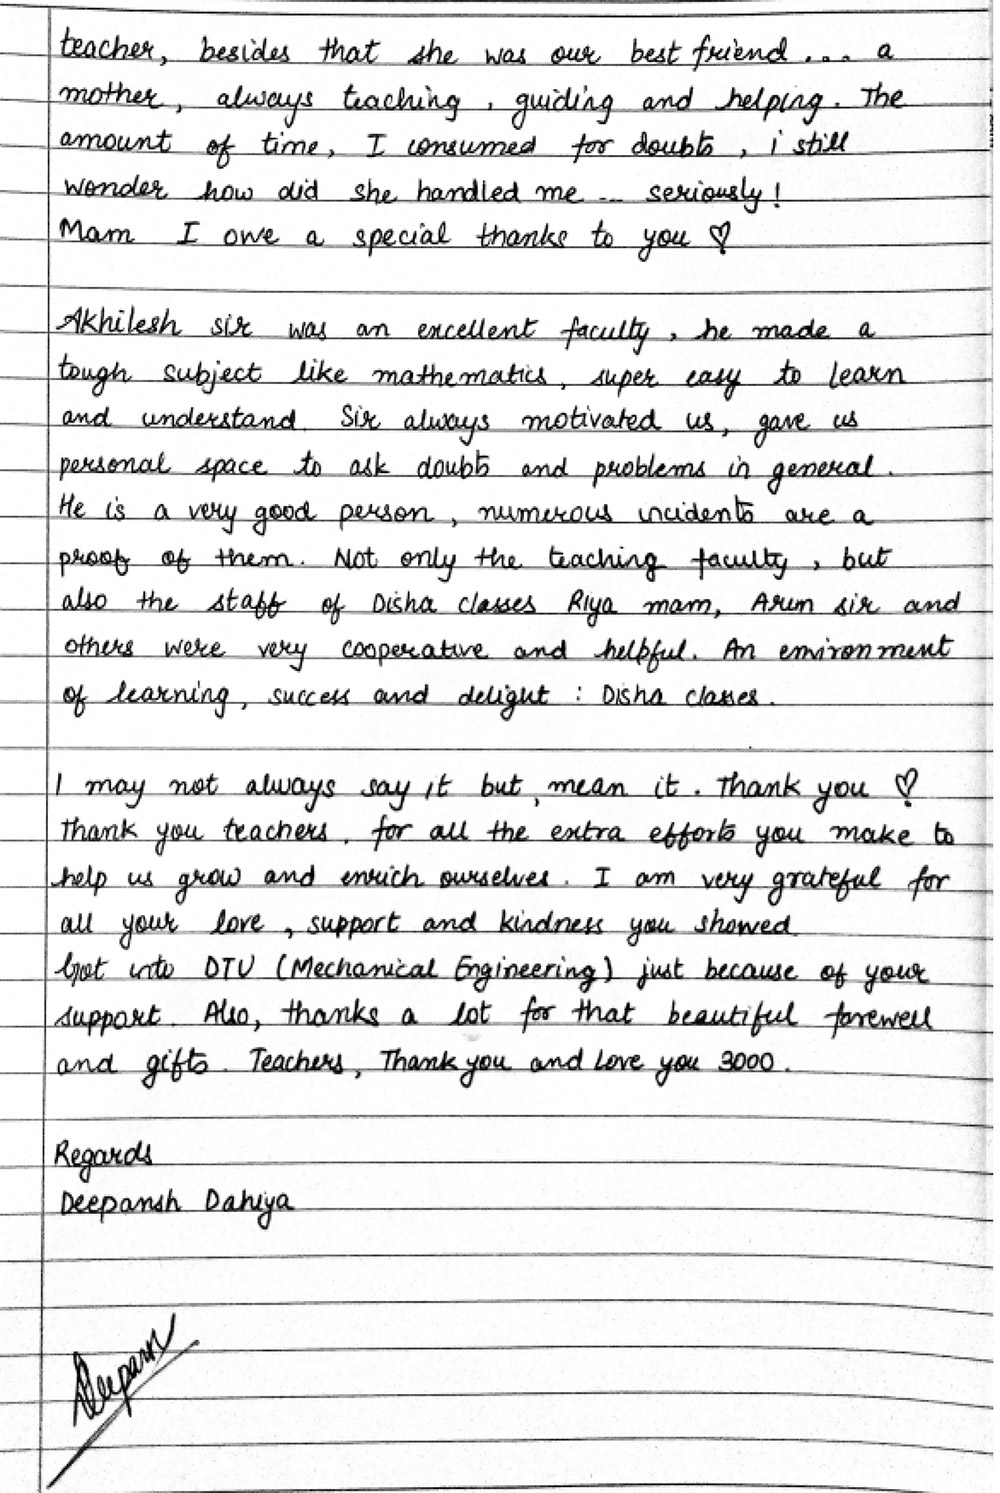 teacher, besides that she was our best friend ... a
mother, always teaching, guiding and helping. The
amount of time, I consumed for doubts, i still
wonder how did she handled me ... seriously!
Mam I owe a special thanks to you ♡
Akhilesh sir was an excellent faculty, he made a
tough subject like mathematics, super easy to learn
and understand. Sir always motivated us, gave us
personal space to ask doubts and problems in general.
He is a very good person, numerous incidents are a
proof of them. Not only the teaching faculty, but
also the staff of Disha classes Riya mam, Arun sir and
others were very cooperative and helpful. An environment
of learning, success and delight : Disha classes.
I may not always say it but, mean it. Thank you ♡
Thank you teachers, for all the extra efforts you make to
help us grow and enrich ourselves. I am very grateful for
all your love, support and kindness you showed
Got into DTU (Mechanical Engineering) just because of your
support. Also, thanks a lot for that beautiful farewell
and gifts. Teachers, Thank you and Love you 3000.
Regards
Deepansh Dahiya
Deepansh